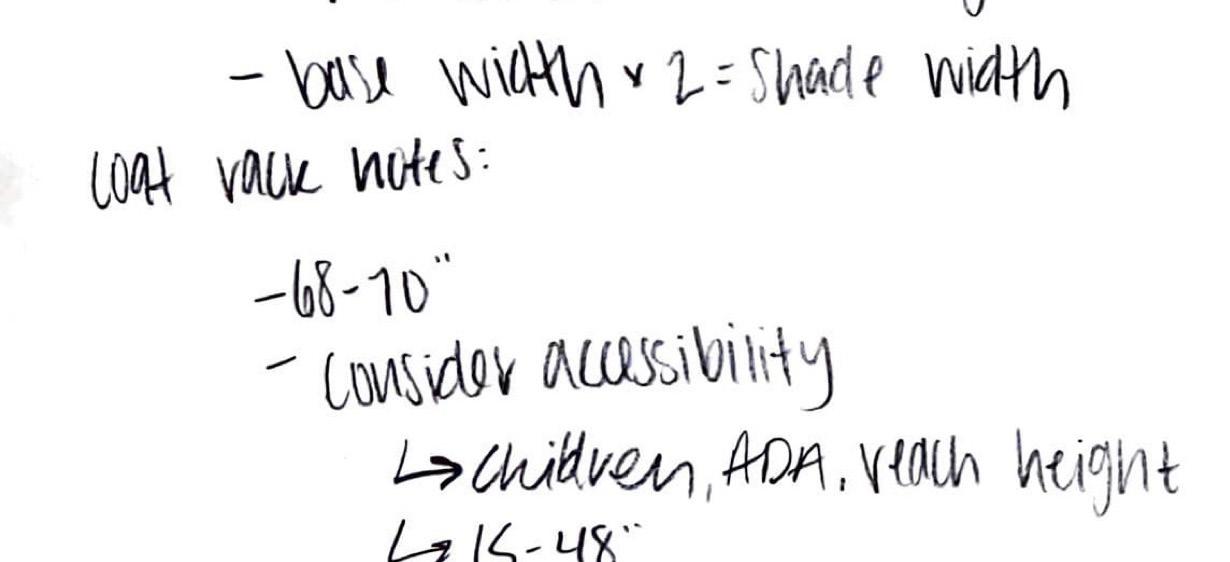 - base width x 2 = Shade width
Coat rack notes:
- 68-70"
- Consider accessibility
↳ Children, ADA, reach height
↳ 15-48"